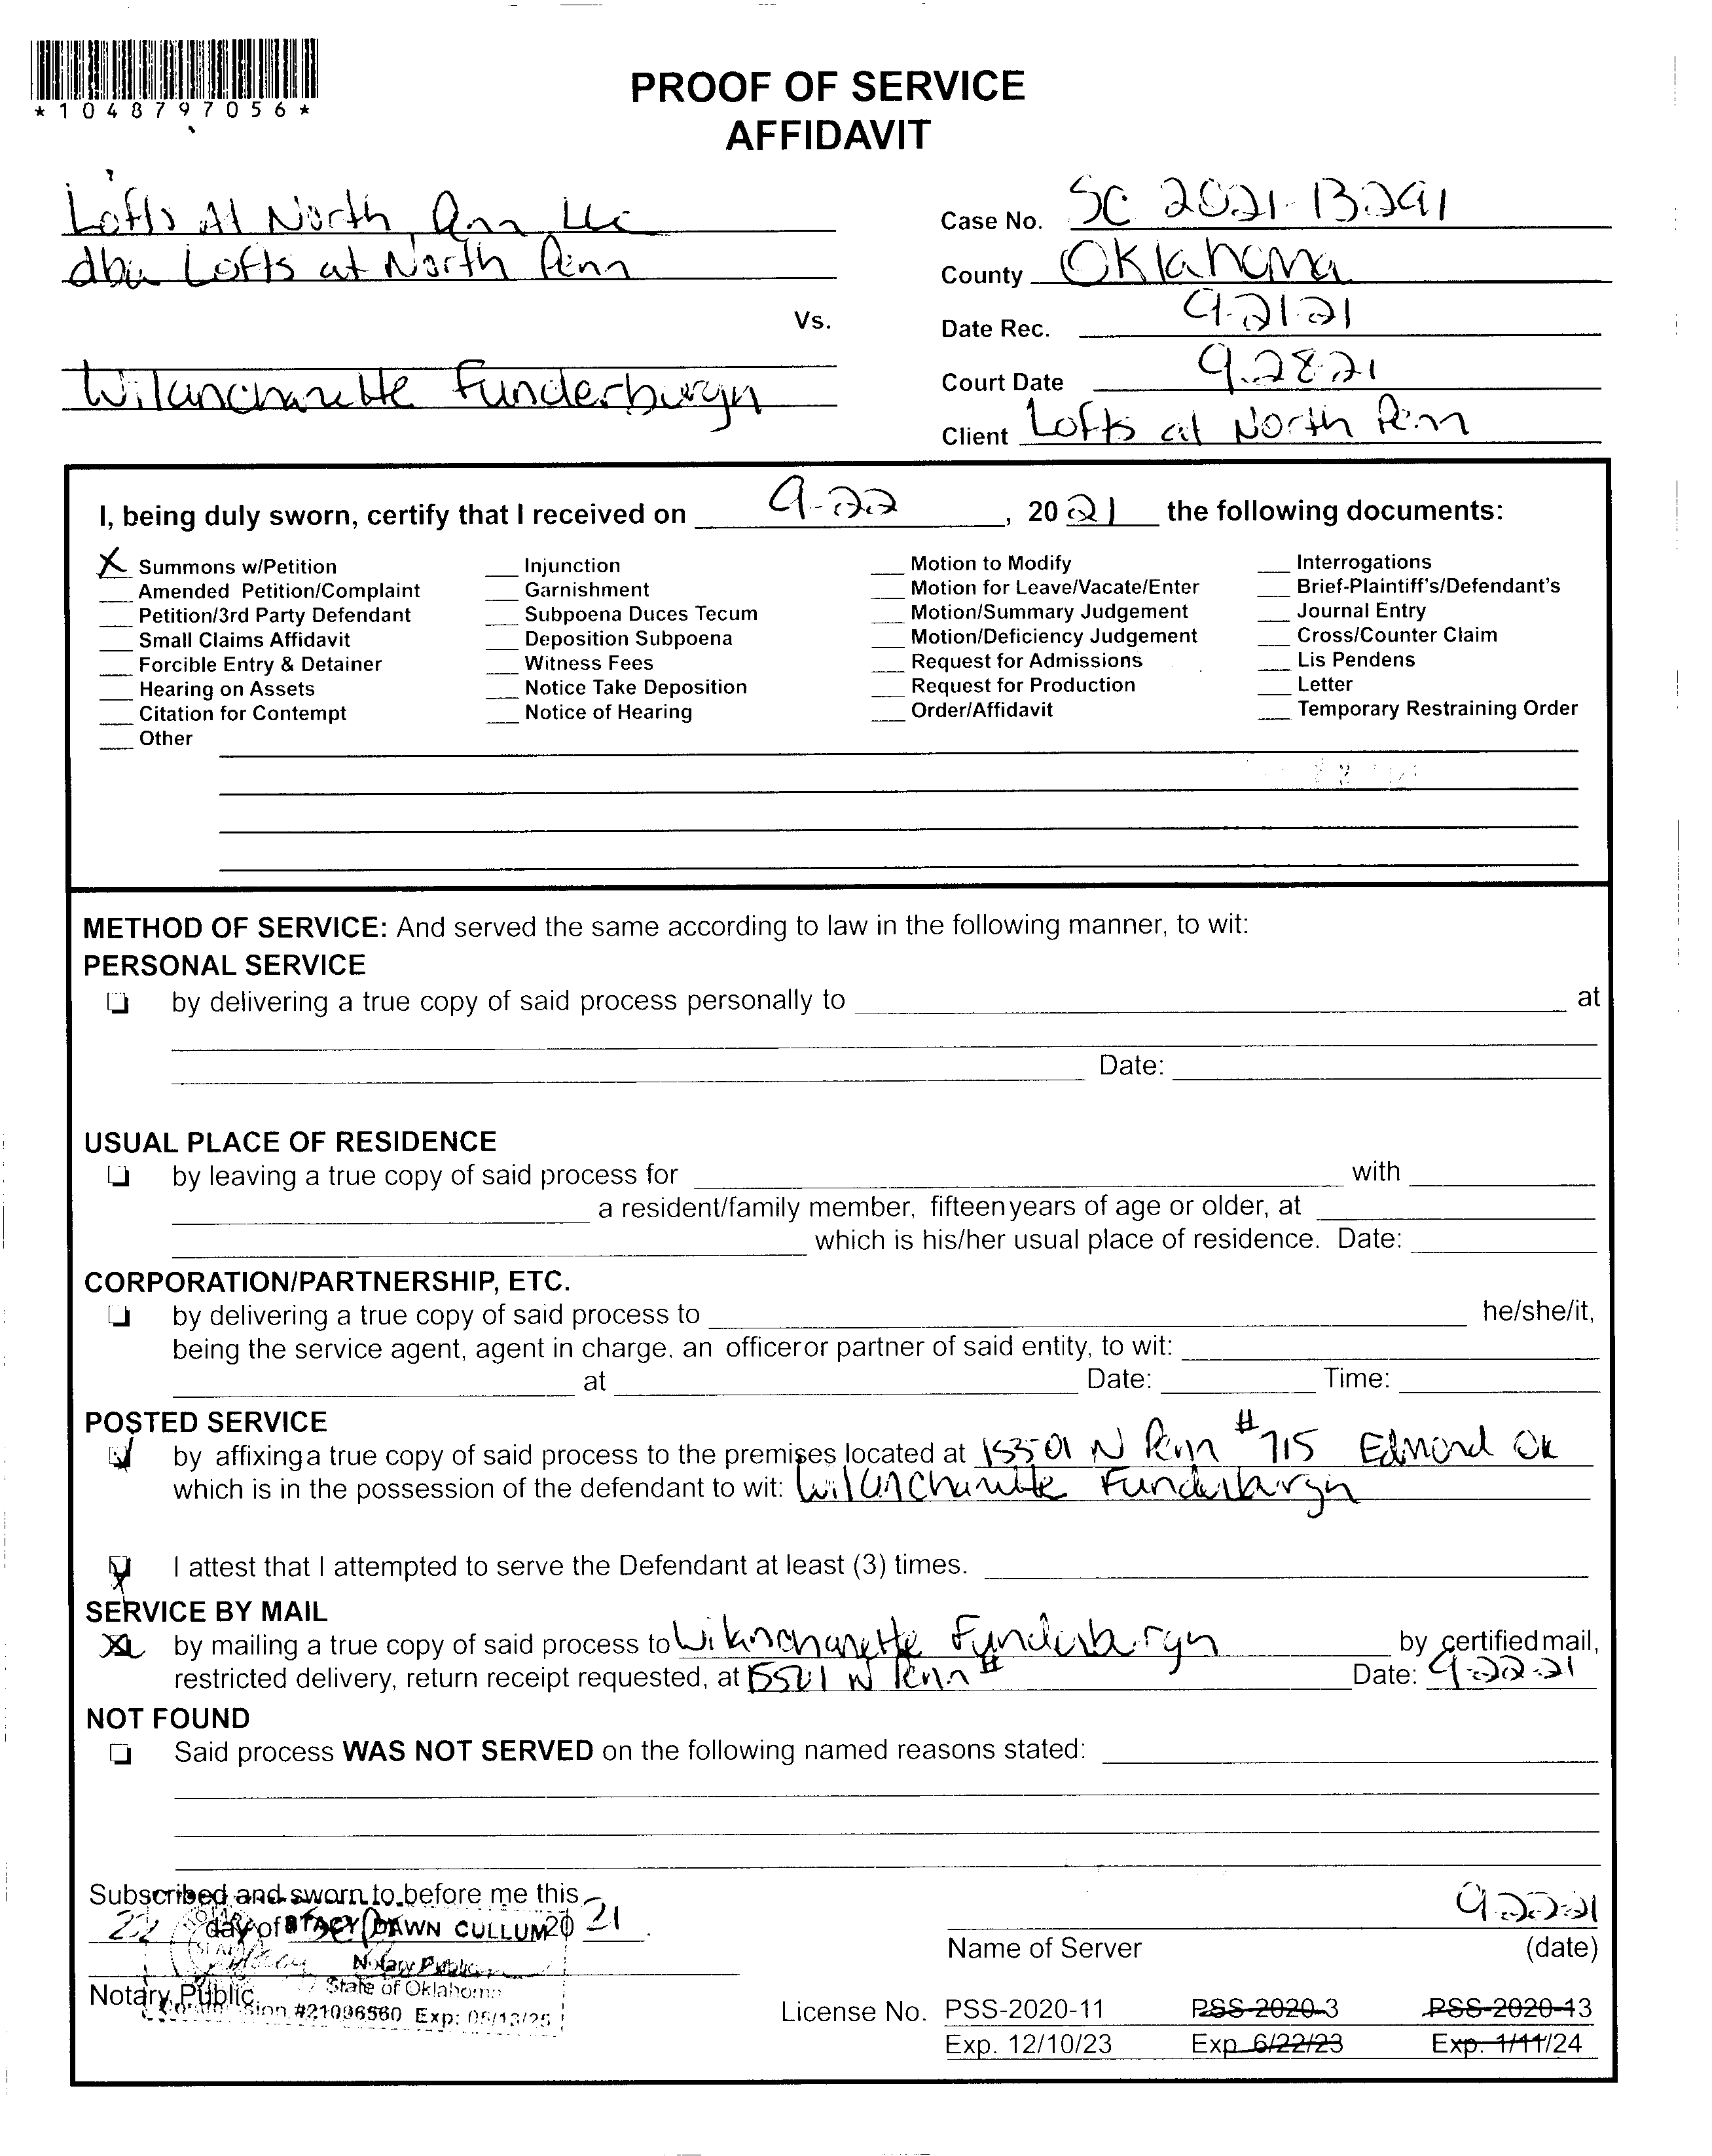 *1048797056*
PROOF OF SERVICE
AFFIDAVIT
Lofts At North Penn LLC
dba Lofts at North Penn
Vs.
Wilanchanette Funderburgh
Case No. SC 2021-13291
County Oklahoma
Date Rec. 9-21-21
Court Date 9-28-21
Client Lofts at North Penn
I, being duly sworn, certify that I received on 9-22, 2021 the following documents:
X Summons w/Petition
Amended Petition/Complaint
Petition/3rd Party Defendant
Small Claims Affidavit
Forcible Entry & Detainer
Hearing on Assets
Citation for Contempt
Other
Injunction
Garnishment
Subpoena Duces Tecum
Deposition Subpoena
Witness Fees
Notice Take Deposition
Notice of Hearing
Motion to Modify
Motion for Leave/Vacate/Enter
Motion/Summary Judgement
Motion/Deficiency Judgement
Request for Admissions
Request for Production
Order/Affidavit
Interrogations
Brief-Plaintiff's/Defendant's
Journal Entry
Cross/Counter Claim
Lis Pendens
Letter
Temporary Restraining Order
METHOD OF SERVICE: And served the same according to law in the following manner, to wit:
PERSONAL SERVICE
by delivering a true copy of said process personally to at
Date:
USUAL PLACE OF RESIDENCE
by leaving a true copy of said process for with
a resident/family member, fifteen years of age or older, at
which is his/her usual place of residence. Date:
CORPORATION/PARTNERSHIP, ETC.
by delivering a true copy of said process to he/she/it,
being the service agent, agent in charge, an officer or partner of said entity, to wit:
at Date: Time:
POSTED SERVICE
by affixing a true copy of said process to the premises located at 15501 N Penn #715 Edmond Ok
which is in the possession of the defendant to wit: Wilanchanette Funderburgh
I attest that I attempted to serve the Defendant at least (3) times.
SERVICE BY MAIL
by mailing a true copy of said process to Wilanchanette Funderburgh by certified mail,
restricted delivery, return receipt requested, at 15501 N Penn # Date: 9-22-21
NOT FOUND
Said process WAS NOT SERVED on the following named reasons stated:
Subscribed and sworn to before me this
22 day of 2021.
STACY DAWN CULLUM
Notary Public
State of Oklahoma
Commission #21006560 Exp: 05/13/25
Notary Public
9-22-21
Name of Server (date)
License No. PSS-2020-11 PSS-2020-3 PSS-2020-13
Exp. 12/10/23 Exp. 6/22/23 Exp. 1/11/24